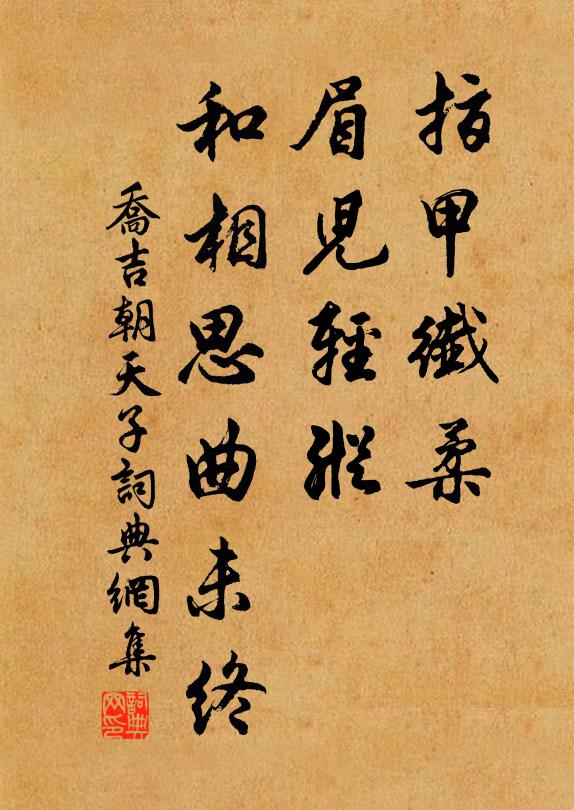 指甲纖柔
眉児輕縱
和相思曲未終
喬吉朝天子詞典網集
詞典网印